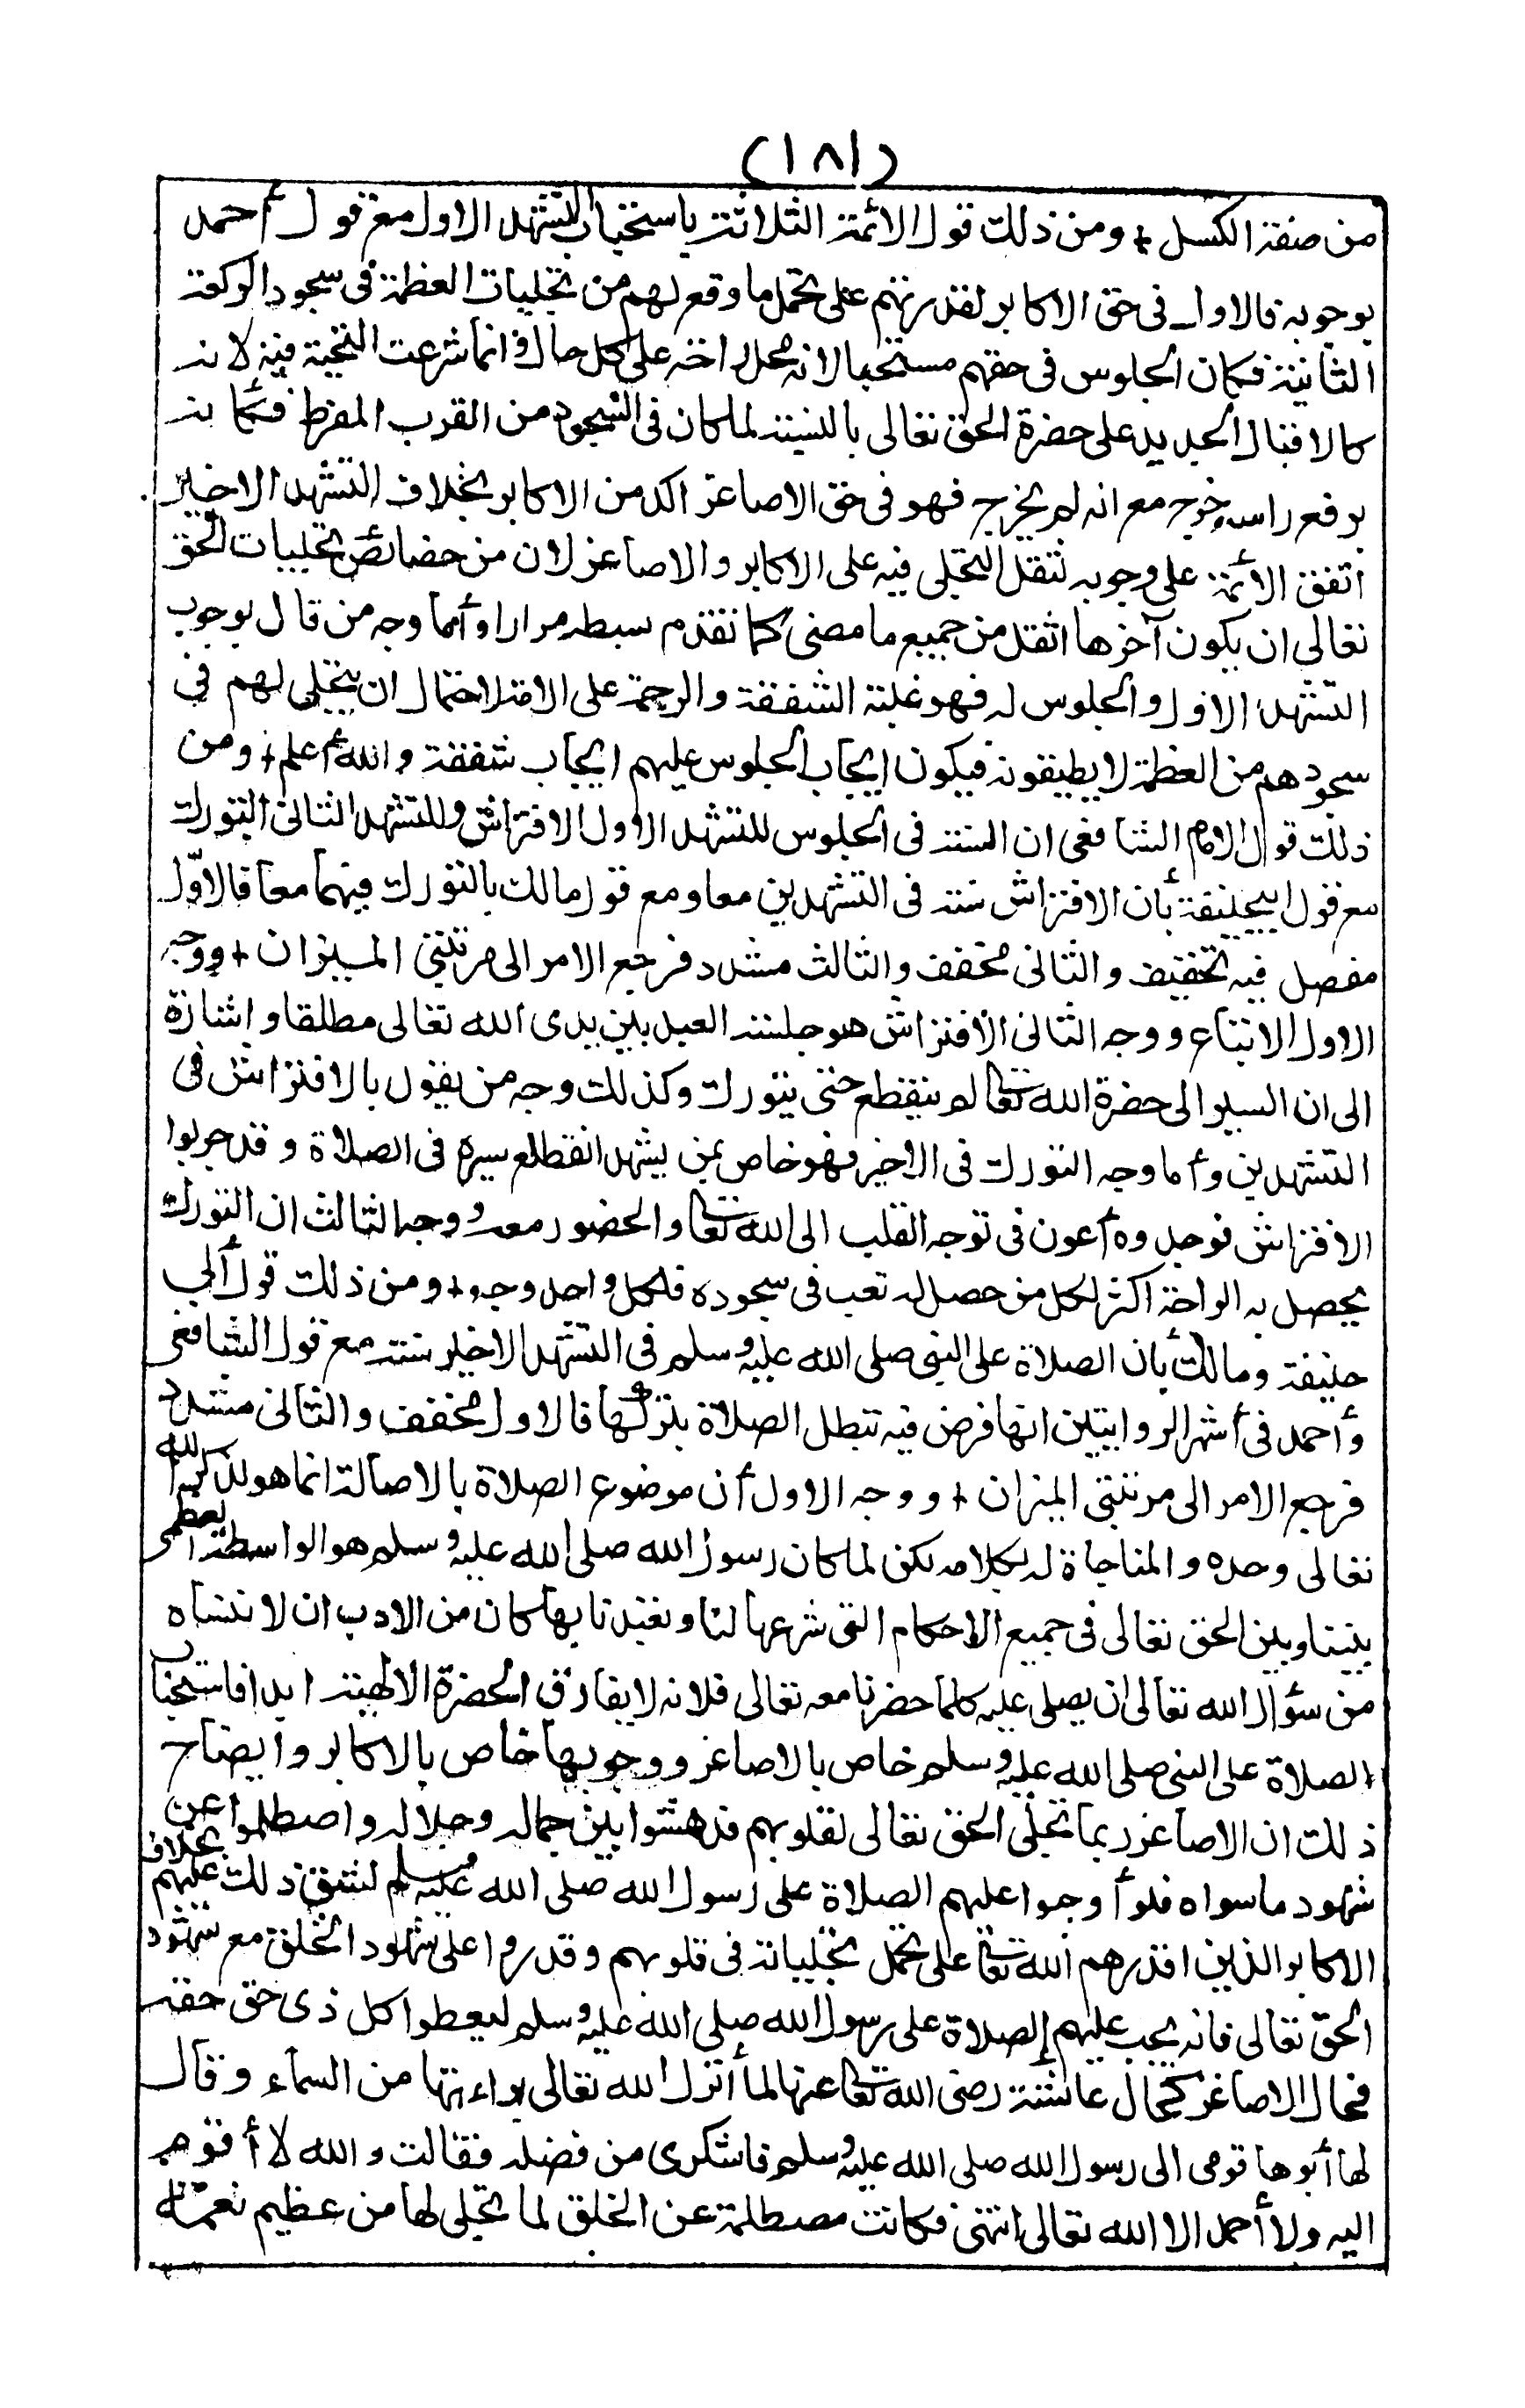 (١٨١)
من صفة الكسل + ومن ذلك قول الائمة الثلاثة باستحباب التشهد الاول مع قول أحمد
بوجوبه فالاول فى حق الاكابر لقدرتهم على تحمل ما وقع لهم من تجليات العظمة فى سجود الركعة
الثانية فكان الجلوس فى حقهم مستحبا لانه محل راحة على كل حال وانما شرعت التحية فيه لانه
كالاقبال الجديد على حضرة الحق تعالى بالنسبة لما كان فى السجود من القرب المفرط فكأنه
برفع راسه خرج مع انه لم يخرج فهو فى حق الاصاغر اكد من الاكابر بخلاف التشهد الاخير
اتفق الأئمة على وجوبه لثقل التجلى فيه على الاكابر والاصاغر لان من خصائص تجليات الحق
تعالى ان يكون آخرها اثقل من جميع ما مضى كما تقدم بسطه مرارا وأما وجه من قال بوجوب
التشهد الاول والجلوس له فهو غلبة الشفقة والرحمة على الامة لاحتمال ان يتجلى لهم فى
سجودهم من العظمة لا يطيقونه فيكون ايجاب الجلوس عليهم ايجاب شفقة والله أعلم + ومن
ذلك قول الامام الشافعى ان السنة فى الجلوس للتشهد الاول الافتراش وللتشهد الثانى التورك
مع قول ابيحنيفة بأن الافتراش سنة فى التشهدين معا ومع قول مالك بالتورك فيهما معا فالاوّل
مفصل فيه تخفيف والثانى مخفف والثالث مشدد فرجع الامر الى مرتبتى الميزان + ووجه
الاول الاتباع ووجه الثانى الافتراش هو جلسة العبد بين يدى الله تعالى مطلقا واشارة
الى ان السير الى حضرة الله تعالى لم ينقطع حتى يتورك وكذلك وجه من يقول بالافتراش فى
التشهدين وأما وجه التورك فى الاخير فهو خاص بمن يشهد انقطاع سيره فى الصلاة وقد جربوا
الافتراش فوجدوه أعون فى توجه القلب الى الله تعالى والحضور معه ووجه الثالث ان التورك
يحصل به الراحة اكثر لكل من حصل له تعب فى سجوده فلكل واحد وجه + ومن ذلك قول أبى
حنيفة ومالك بأن الصلاة على النبى صلى الله عليه وسلم فى التشهد الاخير سنة مع قول الشافعى
وأحمد فى أشهر الروايتين انها فرض فيه تبطل الصلاة بتركها فالاول مخفف والثانى مشدد
فرجع الامر الى مرتبتى الميزان + ووجه الاول أن موضوع الصلاة بالاصالة انما هو لذكر الله
تعالى وحده والمناجاة له بكلامه لكن لما كان رسول الله صلى الله عليه وسلم هو الواسطة العظمى
بيننا وبين الحق تعالى فى جميع الاحكام التى شرعها لنا وتعبدنا بها كان من الادب ان لا ننساه
من سؤال الله تعالى ان يصلى عليه كلما حضرنا معه تعالى فلانه لا يفارق الحضرة الالهية ابدا فاستحباب
الصلاة على النبى صلى الله عليه وسلم خاص بالاصاغر ووجوبها خاص بالاكابر وايضاح
ذلك ان الاصاغر ربما تجلّى الحق تعالى لقلوبهم فدهشوا بين جماله وجلاله واصطلموا عن
شهود ما سواه فلو أوجبوا عليهم الصلاة على رسول الله صلى الله عليه وسلم لشق ذلك عليهم بخلاف
الاكابر الذين اقدرهم الله تعالى على تحمل تجلياته فى قلوبهم وقدروا على شهود الخلق مع شهود
الحق تعالى فانه يجب عليهم الصلاة على رسول الله صلى الله عليه وسلم ليعطوا كل ذى حق حقه
فحال الاصاغر كحال عائشة رضى الله تعالى عنها لما أنزل الله تعالى براءتها من السماء وقال
لها أبوها قومى الى رسول الله صلى الله عليه وسلم فاشكرى من فضله فقالت والله لا أقوم
اليه ولا أحمد الا الله تعالى انتهى فكانت مصطلمة عن الخلق لما تجلى لها من عظيم نعمة الله